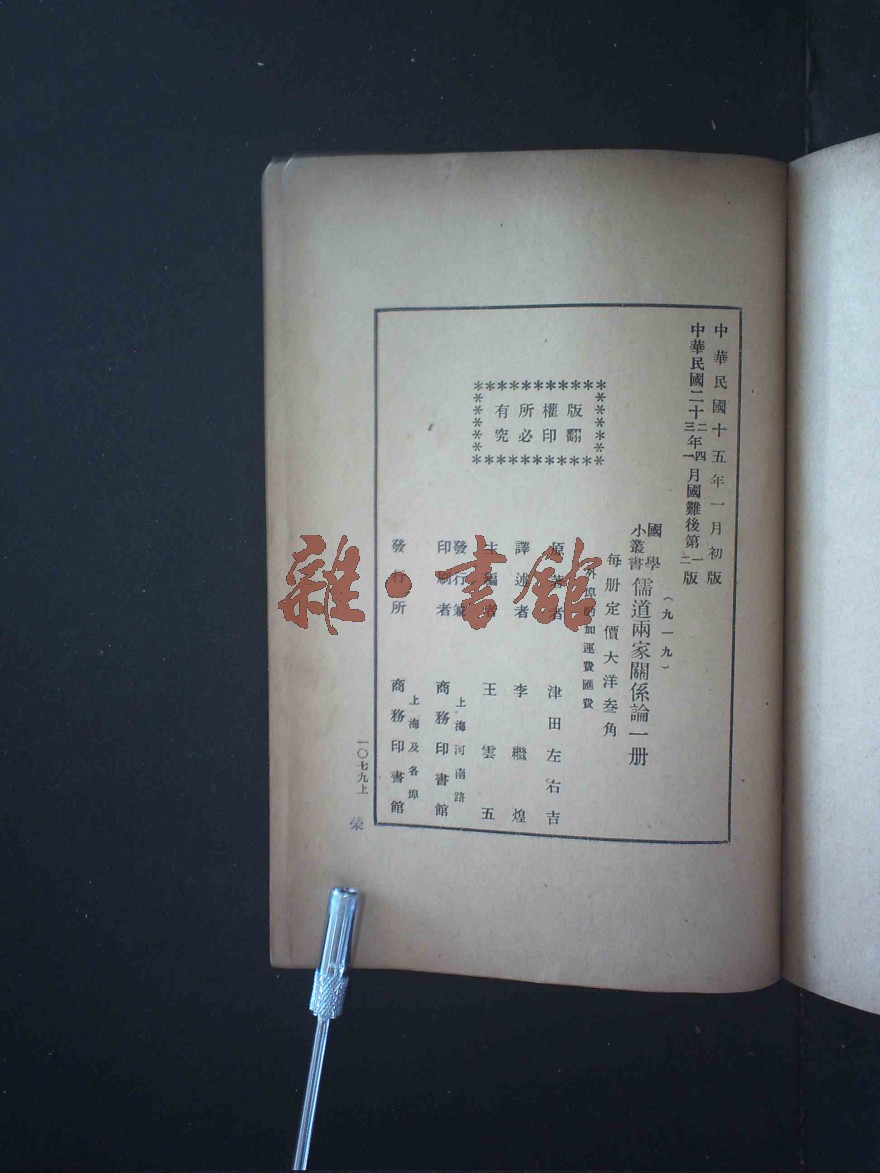 中華民國十五年一月初版
中華民國二十二三年四一月國難後第一二版
（九一九）
國學小叢書 儒道兩家關係論一册
每册定價大洋叁角
外埠酌加運費匯費
版權所有
翻印必究
原著者 津田左右吉
譯述者 李繼煌
主編者 王雲五
發行兼印刷者 上海河南路 商務印書館
發行所 上海及各埠 商務印書館
一〇七九上
榮
雜·書館